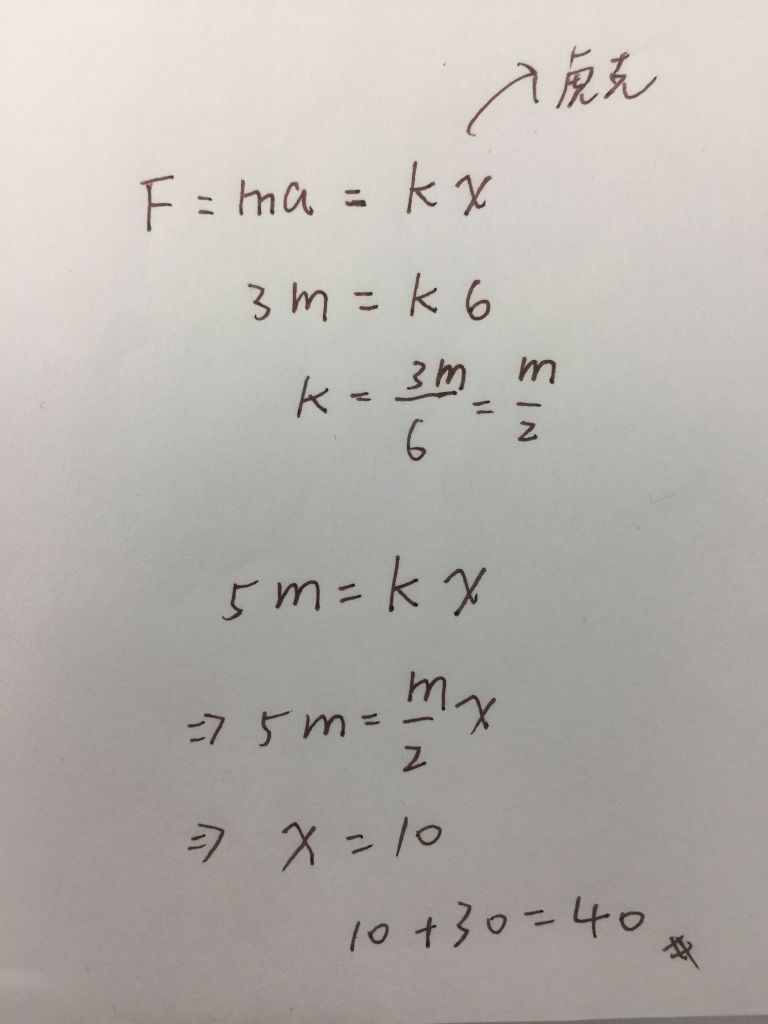 虎克
F = ma = kx
3m = k6
k = 3m/6 = m/2
5m = kx
⇒ 5m = m/2 x
⇒ x = 10
10 + 30 = 40 #